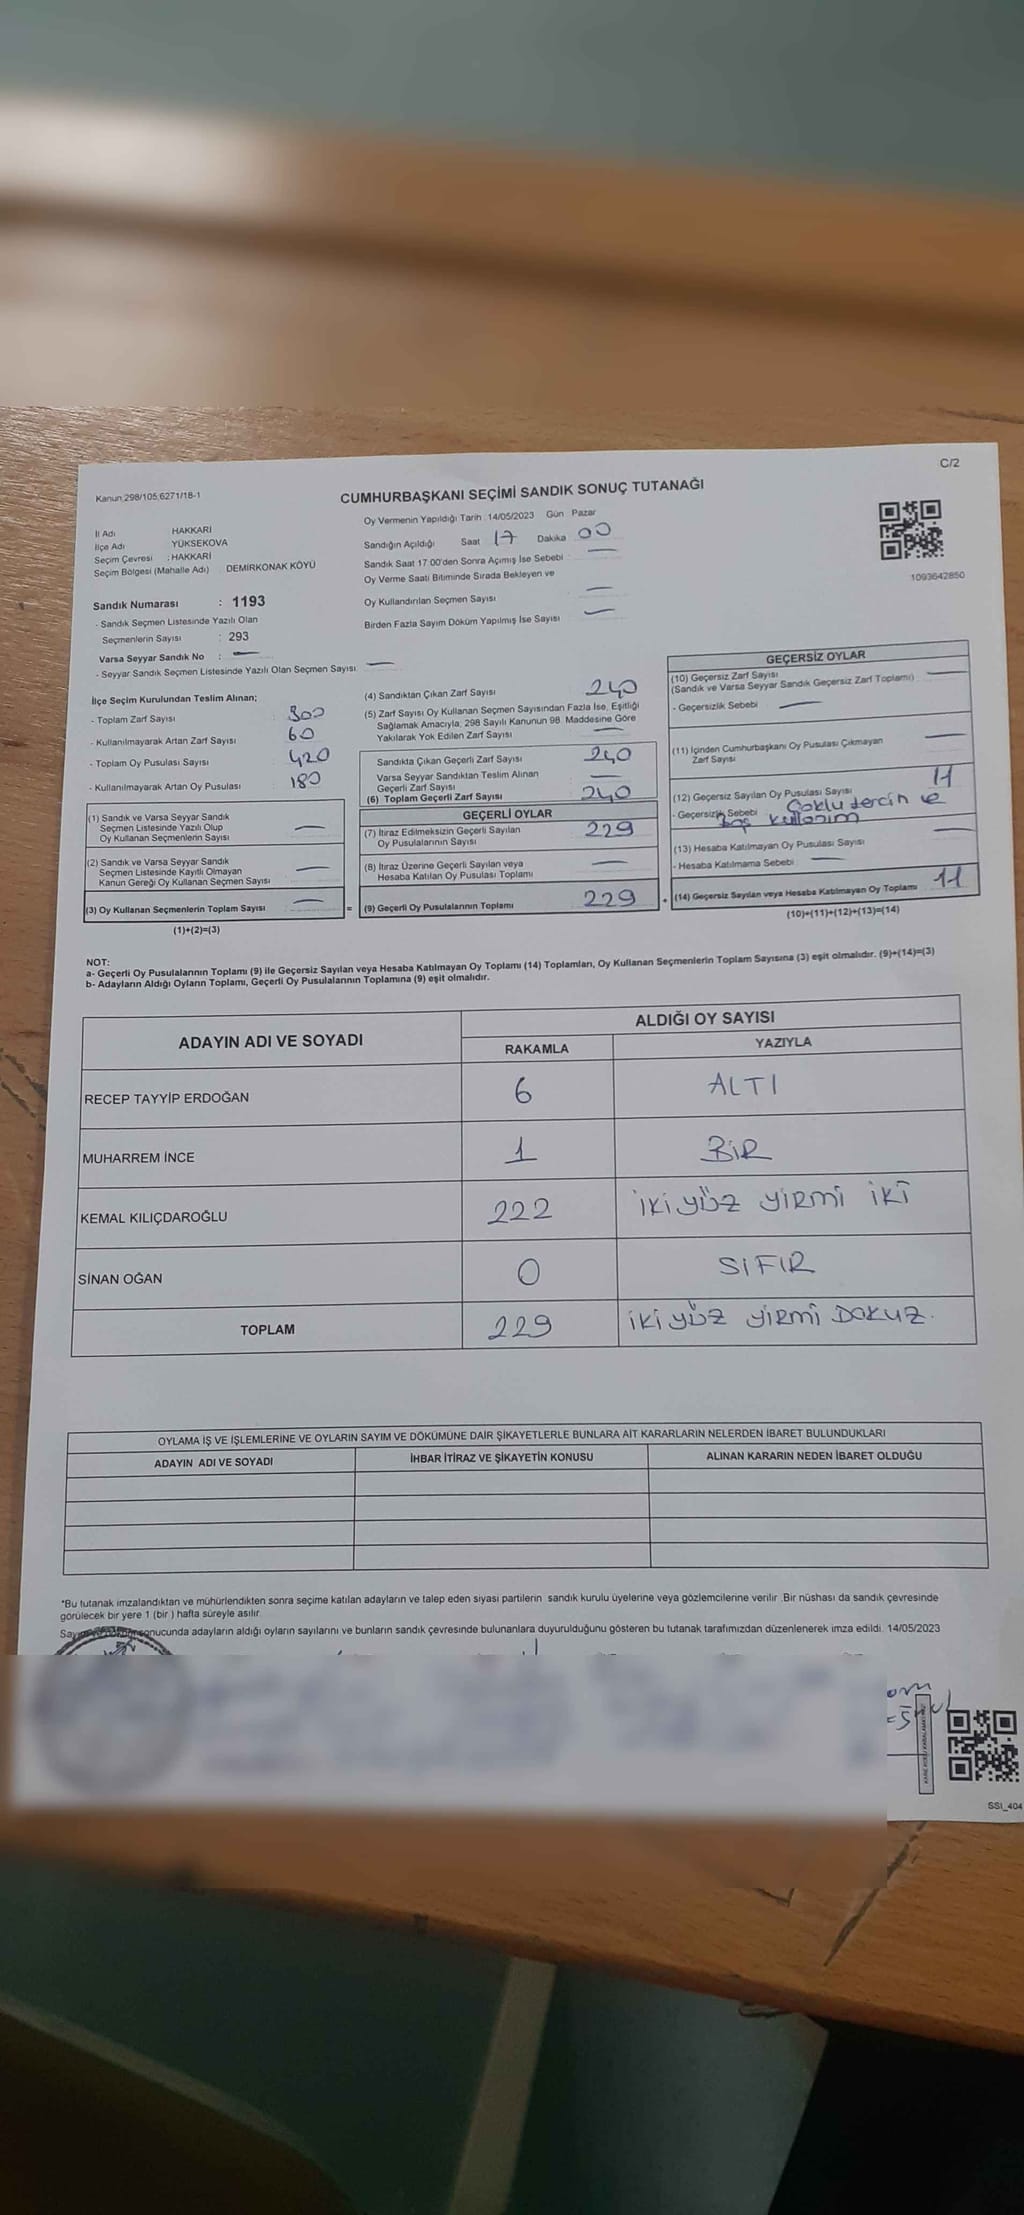 C/2
Kanun 298/105;6271/18-1
CUMHURBAŞKANI SEÇİMİ SANDIK SONUÇ TUTANAĞI
İl Adı HAKKARİ
İlçe Adı YÜKSEKOVA
Seçim Çevresi : HAKKARİ
Seçim Bölgesi (Mahalle Adı) DEMİRKONAK KÖYÜ
Sandık Numarası : 1193
- Sandık Seçmen Listesinde Yazılı Olan
Seçmenlerin Sayısı : 293
Varsa Seyyar Sandık No : —
- Seyyar Sandık Seçmen Listesinde Yazılı Olan Seçmen Sayısı —
Oy Vermenin Yapıldığı Tarih : 14/05/2023 Gün Pazar
Sandığın Açıldığı Saat 17 Dakika 00
Sandık Saat 17:00'den Sonra Açımış İse Sebebi —
Oy Verme Saati Bitiminde Sırada Bekleyen ve
Oy Kullandırılan Seçmen Sayısı —
Birden Fazla Sayım Döküm Yapılmış İse Sayısı —
1093642850
İlçe Seçim Kurulundan Teslim Alınan;
- Toplam Zarf Sayısı 300
- Kullanılmayarak Artan Zarf Sayısı 60
- Toplam Oy Pusulası Sayısı 420
- Kullanılmayarak Artan Oy Pusulası 180
(1) Sandık ve Varsa Seyyar Sandık
Seçmen Listesinde Yazılı Olup
Oy Kullanan Seçmenlerin Sayısı —
(2) Sandık ve Varsa Seyyar Sandık
Seçmen Listesinde Kayıtlı Olmayan
Kanun Gereği Oy Kullanan Seçmen Sayısı —
(3) Oy Kullanan Seçmenlerin Toplam Sayısı —
(1)+(2)=(3)
(4) Sandıktan Çıkan Zarf Sayısı 240
(5) Zarf Sayısı Oy Kullanan Seçmen Sayısından Fazla İse, Eşitliği
Sağlamak Amacıyla, 298 Sayılı Kanunun 98. Maddesine Göre
Yakılarak Yok Edilen Zarf Sayısı —
Sandıkta Çıkan Geçerli Zarf Sayısı 240
Varsa Seyyar Sandıktan Teslim Alınan
Geçerli Zarf Sayısı —
(6) Toplam Geçerli Zarf Sayısı 240
GEÇERLİ OYLAR
(7) İtiraz Edilmeksizin Geçerli Sayılan
Oy Pusulalarının Sayısı 229
(8) İtiraz Üzerine Geçerli Sayılan veya
Hesaba Katılan Oy Pusulası Toplamı —
= (9) Geçerli Oy Pusulalarının Toplamı 229
GEÇERSİZ OYLAR
(10) Geçersiz Zarf Sayısı
(Sandık ve Varsa Seyyar Sandık Geçersiz Zarf Toplamı) —
- Geçersizlik Sebebi —
(11) İçinden Cumhurbaşkanı Oy Pusulası Çıkmayan
Zarf Sayısı —
(12) Geçersiz Sayılan Oy Pusulası Sayısı 11
- Geçersizlik Sebebi Çoklu tercin ve
boş kullanım
(13) Hesaba Katılmayan Oy Pusulası Sayısı —
- Hesaba Katılmama Sebebi —
+ (14) Geçersiz Sayılan veya Hesaba Katılmayan Oy Toplamı 11
(10)+(11)+(12)+(13)=(14)
NOT:
a- Geçerli Oy Pusulalarının Toplamı (9) ile Geçersiz Sayılan veya Hesaba Katılmayan Oy Toplamı (14) Toplamları, Oy Kullanan Seçmenlerin Toplam Sayısına (3) eşit olmalıdır. (9)+(14)=(3)
b- Adayların Aldığı Oyların Toplamı, Geçerli Oy Pusulalarının Toplamına (9) eşit olmalıdır.
ADAYIN ADI VE SOYADI ALDIĞI OY SAYISI
RAKAMLA YAZIYLA
RECEP TAYYİP ERDOĞAN 6 ALTI
MUHARREM İNCE 1 BİR
KEMAL KILIÇDAROĞLU 222 İKİ YÜZ YİRMİ İKİ
SİNAN OĞAN 0 SIFIR
TOPLAM 229 İKİ YÜZ YİRMİ DOKUZ.
OYLAMA İŞ VE İŞLEMLERİNE VE OYLARIN SAYIM VE DÖKÜMÜNE DAİR ŞİKAYETLERLE BUNLARA AİT KARARLARIN NELERDEN İBARET BULUNDUKLARI
ADAYIN ADI VE SOYADI İHBAR İTİRAZ VE ŞİKAYETİN KONUSU ALINAN KARARIN NEDEN İBARET OLDUĞU
*Bu tutanak imzalandıktan ve mühürlendikten sonra seçime katılan adayların ve talep eden siyasi partilerin sandık kurulu üyelerine veya gözlemcilerine verilir. Bir nüshası da sandık çevresinde
görülecek bir yere 1 (bir ) hafta süreyle asılır.
adayların aldığı oyların sayılarını ve bunların sandık çevresinde bulunanlara duyurulduğunu gösteren bu tutanak tarafımızdan düzenlenerek imza edildi. 14/05/2023
SSI_404